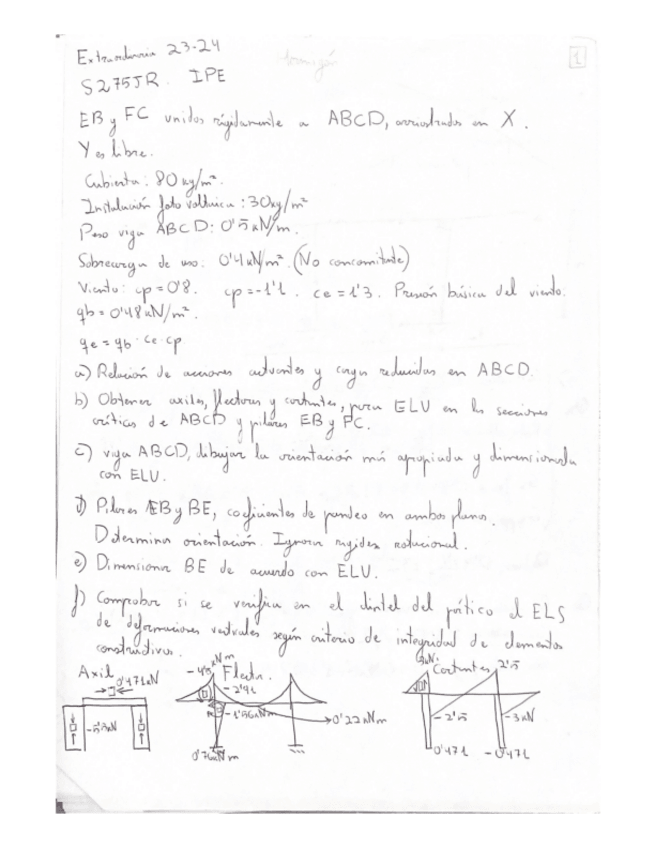 Extraordinaria 23-24
1
S275JR. IPE
EB y FC unidos rígidamente a ABCD, arriostrados en X.
Y es libre.
Cubierta: 80 kg/m².
Instalación foto voltaica: 30kg/m²
Peso viga ABCD: 0'5 kN/m.
Sobrecarga de uso: 0'4 kN/m². (No concomitante)
Viento: cp = 0'8. cp = -1'1. ce = 1'3. Presión básica del viento.
qb = 0'48 kN/m².
qe = qb · ce · cp
a) Relación de acciones actuantes y cargas reducidas en ABCD.
b) Obtener axiles, flectores y cortantes, para ELU en las secciones
críticas de ABCD y pilares EB y FC.
c) viga ABCD, dibujar la orientación más apropiada y dimensionarla
con ELU.
d) Pilares EB y BE, coeficientes de pandeo en ambos planos.
Determinar orientación. Ignorar rigidez rotacional.
e) Dimensionar BE de acuerdo con ELU.
f) Comprobar si se verifica en el dintel del pórtico el ELS
de deformaciones verticales según criterio de integridad de elementos
constructivos.
Axil
0'471kN
-5'5kN
Flector
-4'5 kNm
-2'94
-1'56kNm
0'22kNm
0'76kNm
Cortantes
3kN
2'5
-2'5
-3kN
0'471
-0'471